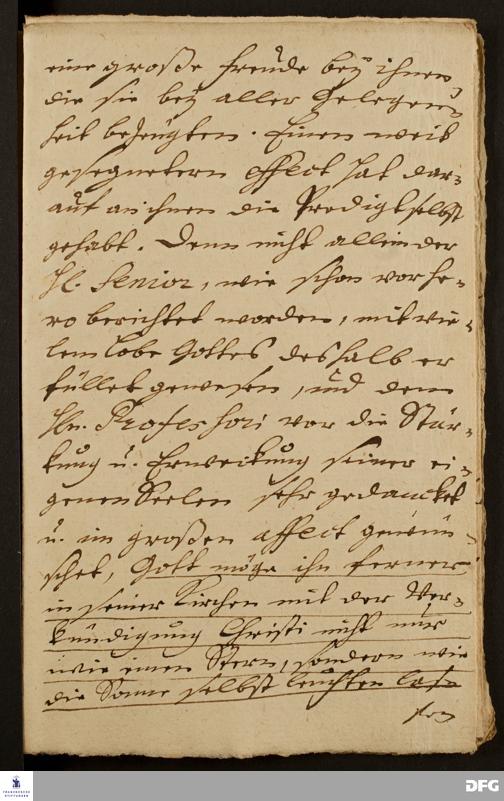 eine große Freude bey ihnen,
die sie bey aller Gelegen-
heit bezeugten. Einen weit
gesegnetern effect hat dar-
auf an ihnen die Predigt selbst
gehabt. Denn nicht allein der
H. Senior, wie schon vorhe-
ro berichtet worden, mit vie-
lem Lobe Gottes deshalb er
füllet gewesen, und dem
Hn. Professori vor die Stär-
kung u. Erweckung seiner ei-
genen Seelen sehr gedancket
u. im großen affect gewün-
schet, Gott möge ihn ferner
in seiner Kirchen mit der Ver-
kündigung Christi nicht nur
wie einen Stern, sondern wie
die Sonne selbst leuchten laß-
sen
FRANCKESCHE
STIFTUNGEN
DFG